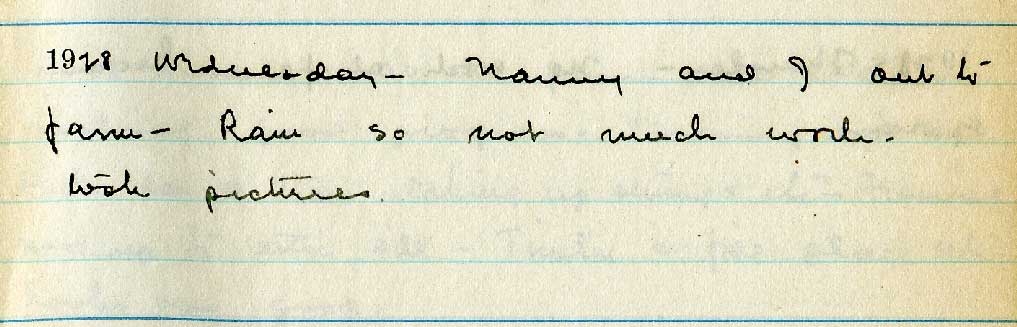 1928 Wednesday - Nanny and I out to
farm - Rain so not much work -
took pictures.